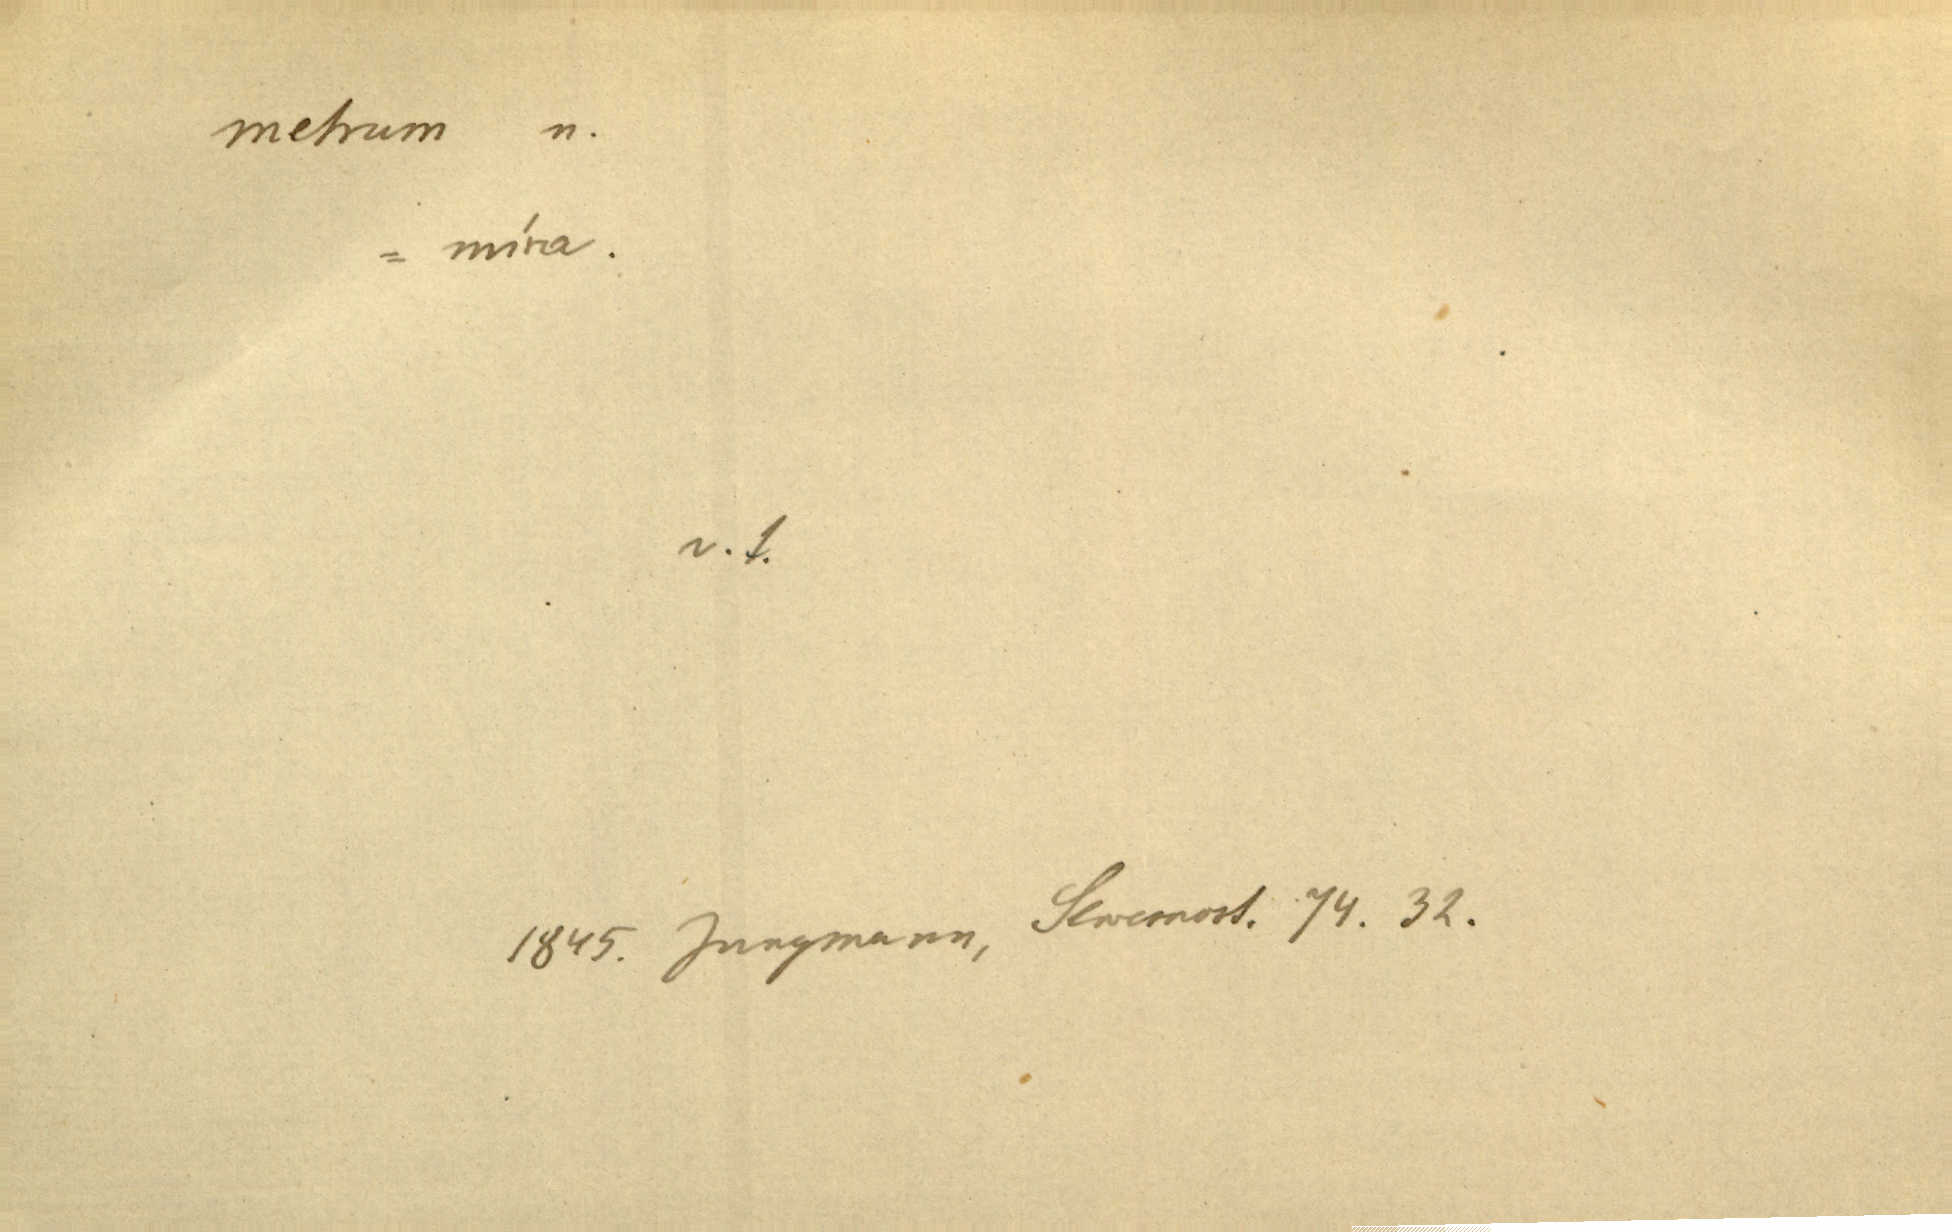 metrum n.
= míra.
v. t.
1845. Jungmann, Slovesnost. 74. 32.